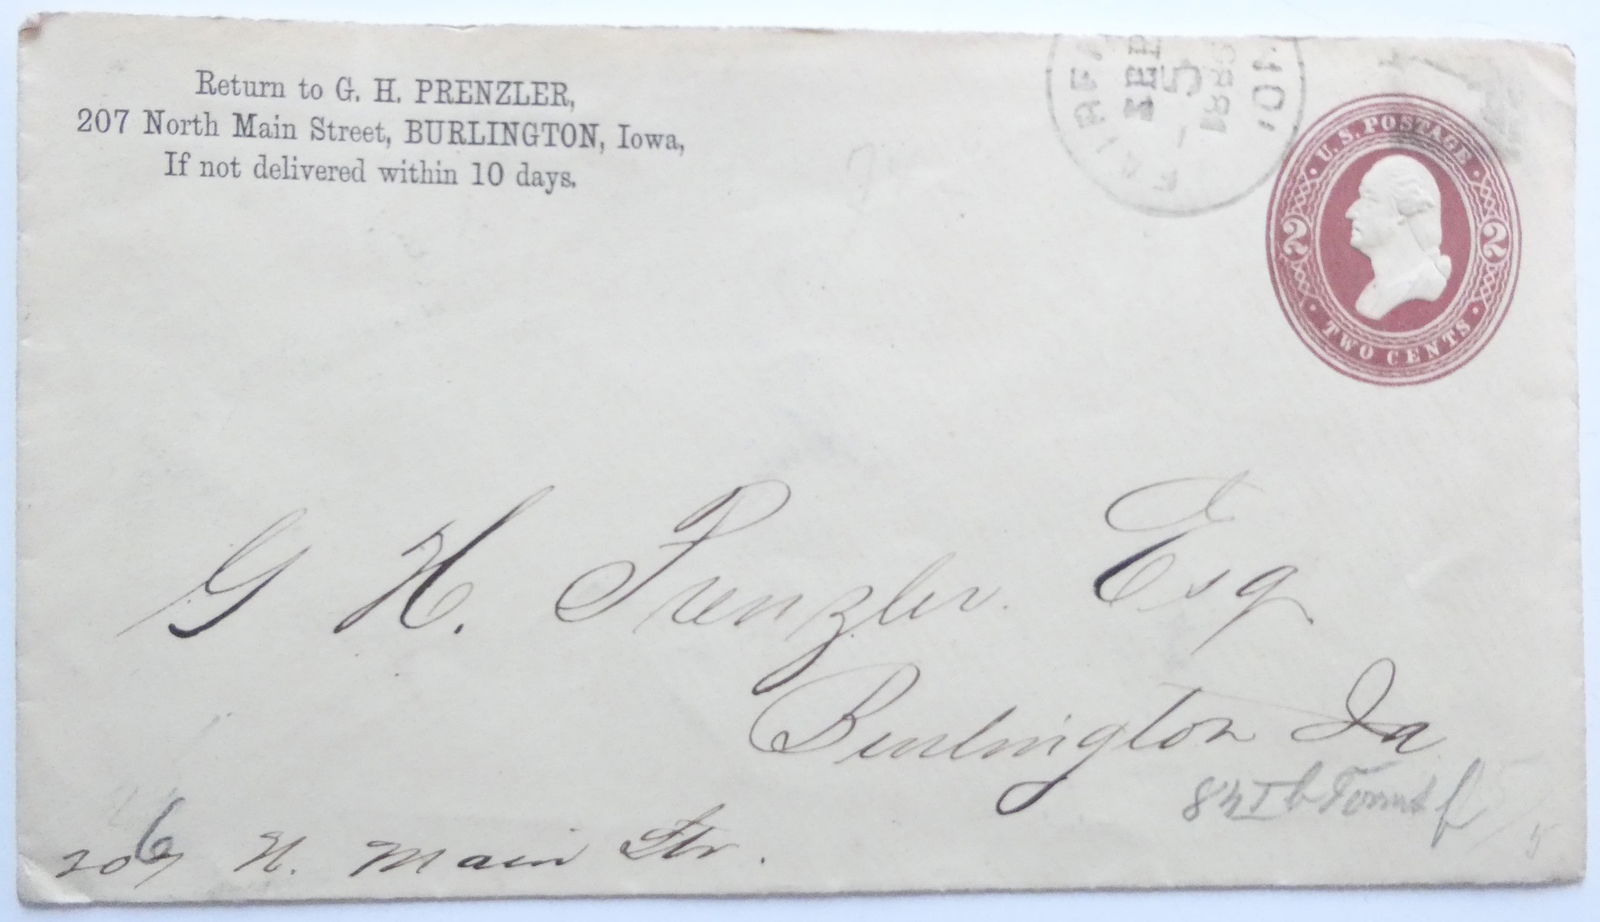 Return to G. H. PRENZLER,
207 North Main Street, BURLINGTON, Iowa,
If not delivered within 10 days.
FEB
5
U.S. POSTAGE
2 2
TWO CENTS
G H. Prenzler. Esq
Burlington Ia
207 N. Main Str.
6